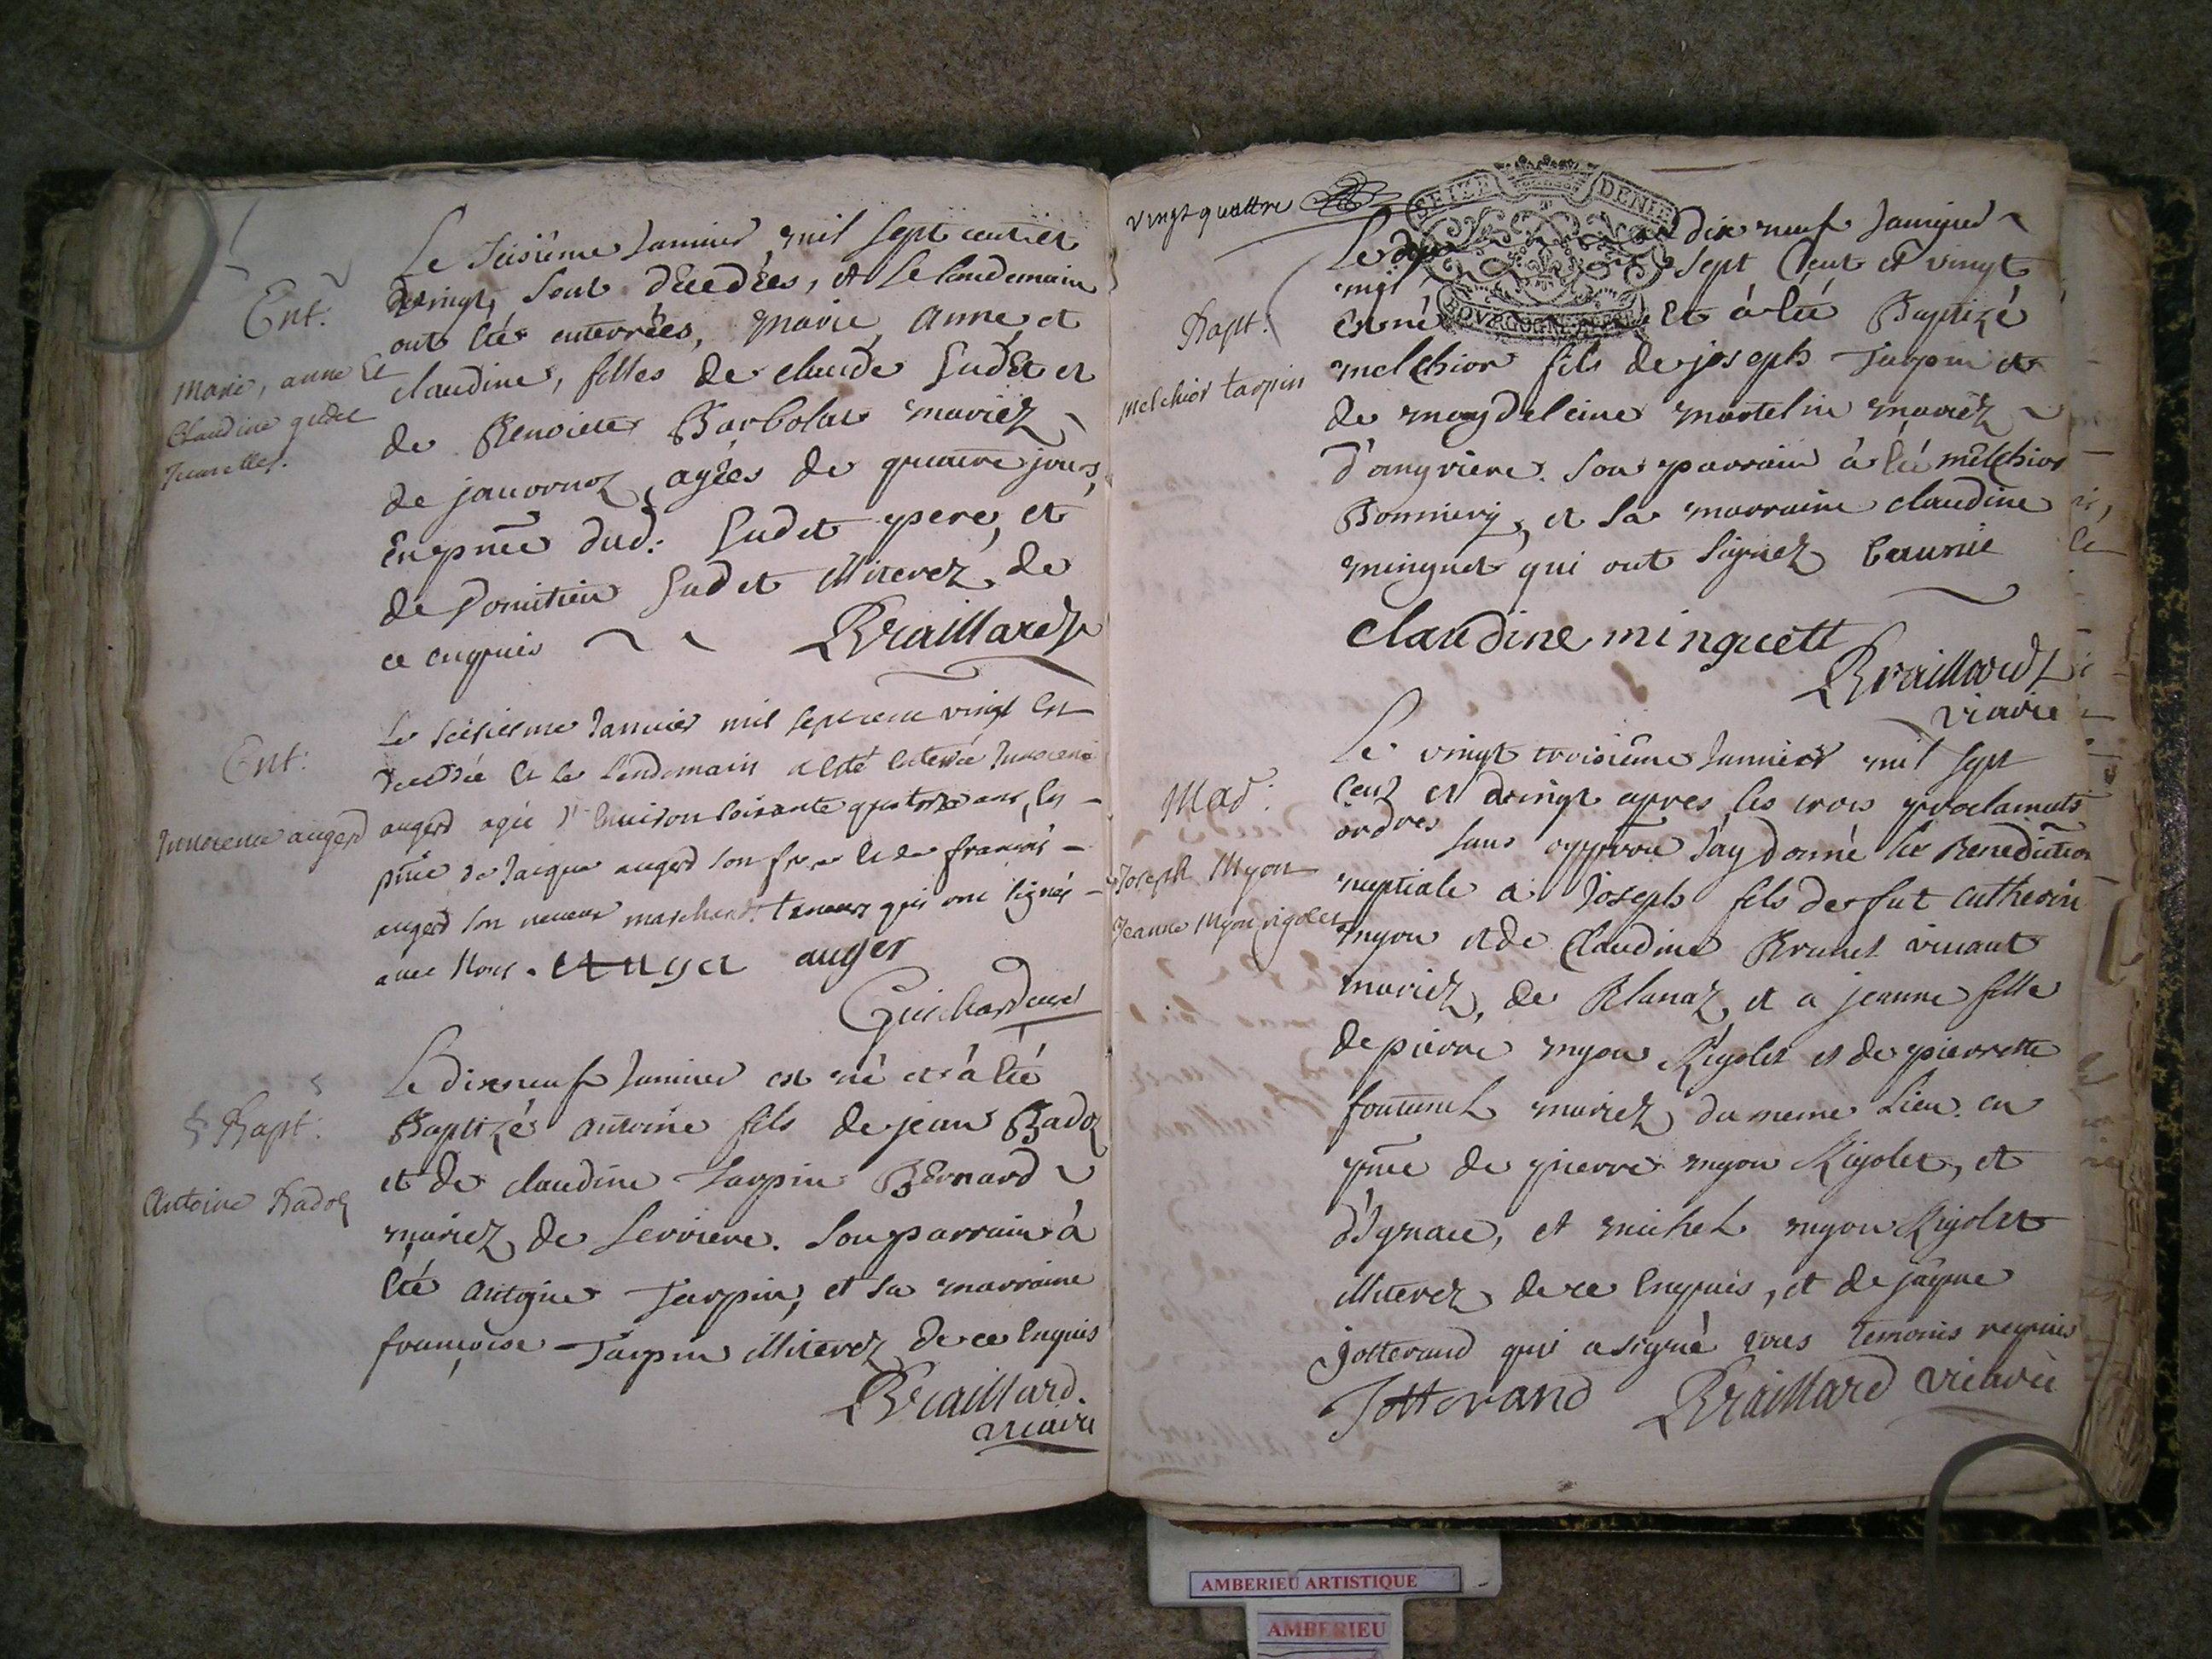 Ent.
Marie, anne Et
Claudine gudet
Jumelles.
Le seisiême Janvier mil sept cent et
vingt, sont décedées, et le landemain
ont été enterrées, Marie, Anne, et
claudine, filles de claude Gudet et
de Benoiste Barbolat mariez
de janornoz, agées de quattre jours,
En pñce dud: Gudet pere, et
de Domitien Gudet illiterez de
ce enquis
Braillard
Ent:
Innocence augerd
Le seisiesme Janvier mil sept cent vingt Est
decedée Et le Lendemain a esté Enterrée Innocence
augerd agée d'Environ soixante quatorze ans, En
pñce de Jacque augerd son frere Et de francois
augerd son neveux marchands temoins qui ont signés
avec Nous. auger auger
Guichard curé
Bapt:
Antoine Badoz
Le dixneuf Janvier est né et à été
Baptizé antoine fils de jean Badoz
et de claudine Tarpin Bernard
mariez de serriere. Son parrain à
été antoine Tarpin, et sa marraine
françoise Tarpin illiterez de ce Enquis
Braillard.
vicaire
vingt quattre
SEIZE DENIE
BOURGOGNE
Bapt:
Melchior tarpin
Le dix neuf Janvier
mil sept Cent et vingt
Est né Et à été Baptizé
melchior fils de joseph Tarpin et
de magdeleine martelin mariez
d'angriere. Son parrain à été melchior
Bonnier, et sa marraine claudine
minguet qui ont signez
claudine minguett
Braillard
vicaire
Mad:
Joseph Myon
Jeanne Myon rigolet
Le vingt troisiême Janvier mil sept
Cent et vingt apres les trois proclamats
ordres sans oppõon j'ay donné la Benediction
nuptiale a Joseph fils de fut Catherin
myon et de Claudine Brunet vivant
mariez, de Blanaz, et a jeanne fille
de pierre myon Rigolet et de pierrette
fontanel mariez du meme Lieu. en
pñce de pierre myon Rigolet, et
d'Ignace, et michel myon Rigolet
illiterez de ce Enquis, et de jaque
jotterand qui a signé tous temoins requis
Jotterand Braillard vicaire
AMBERIEU ARTISTIQUE
AMBERIEU